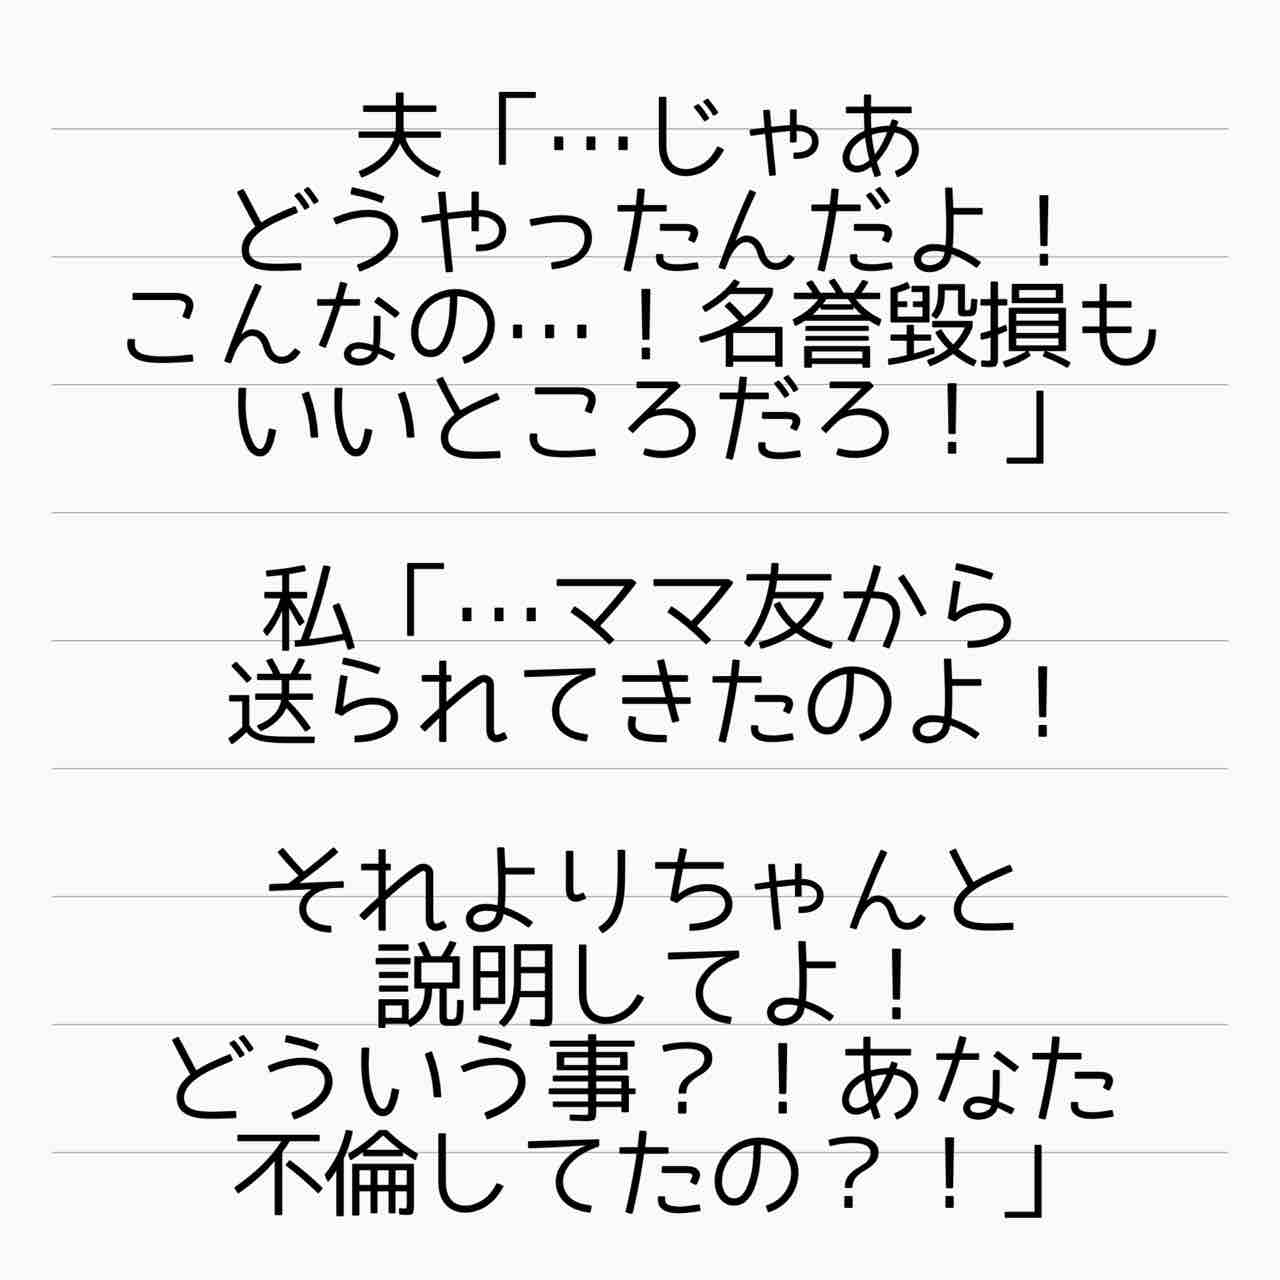 夫「…じゃあ
どうやったんだよ！
こんなの…！名誉毀損も
いいところだろ！」
私「…ママ友から
送られてきたのよ！
それよりちゃんと
説明してよ！
どういう事？！あなた
不倫してたの？！」